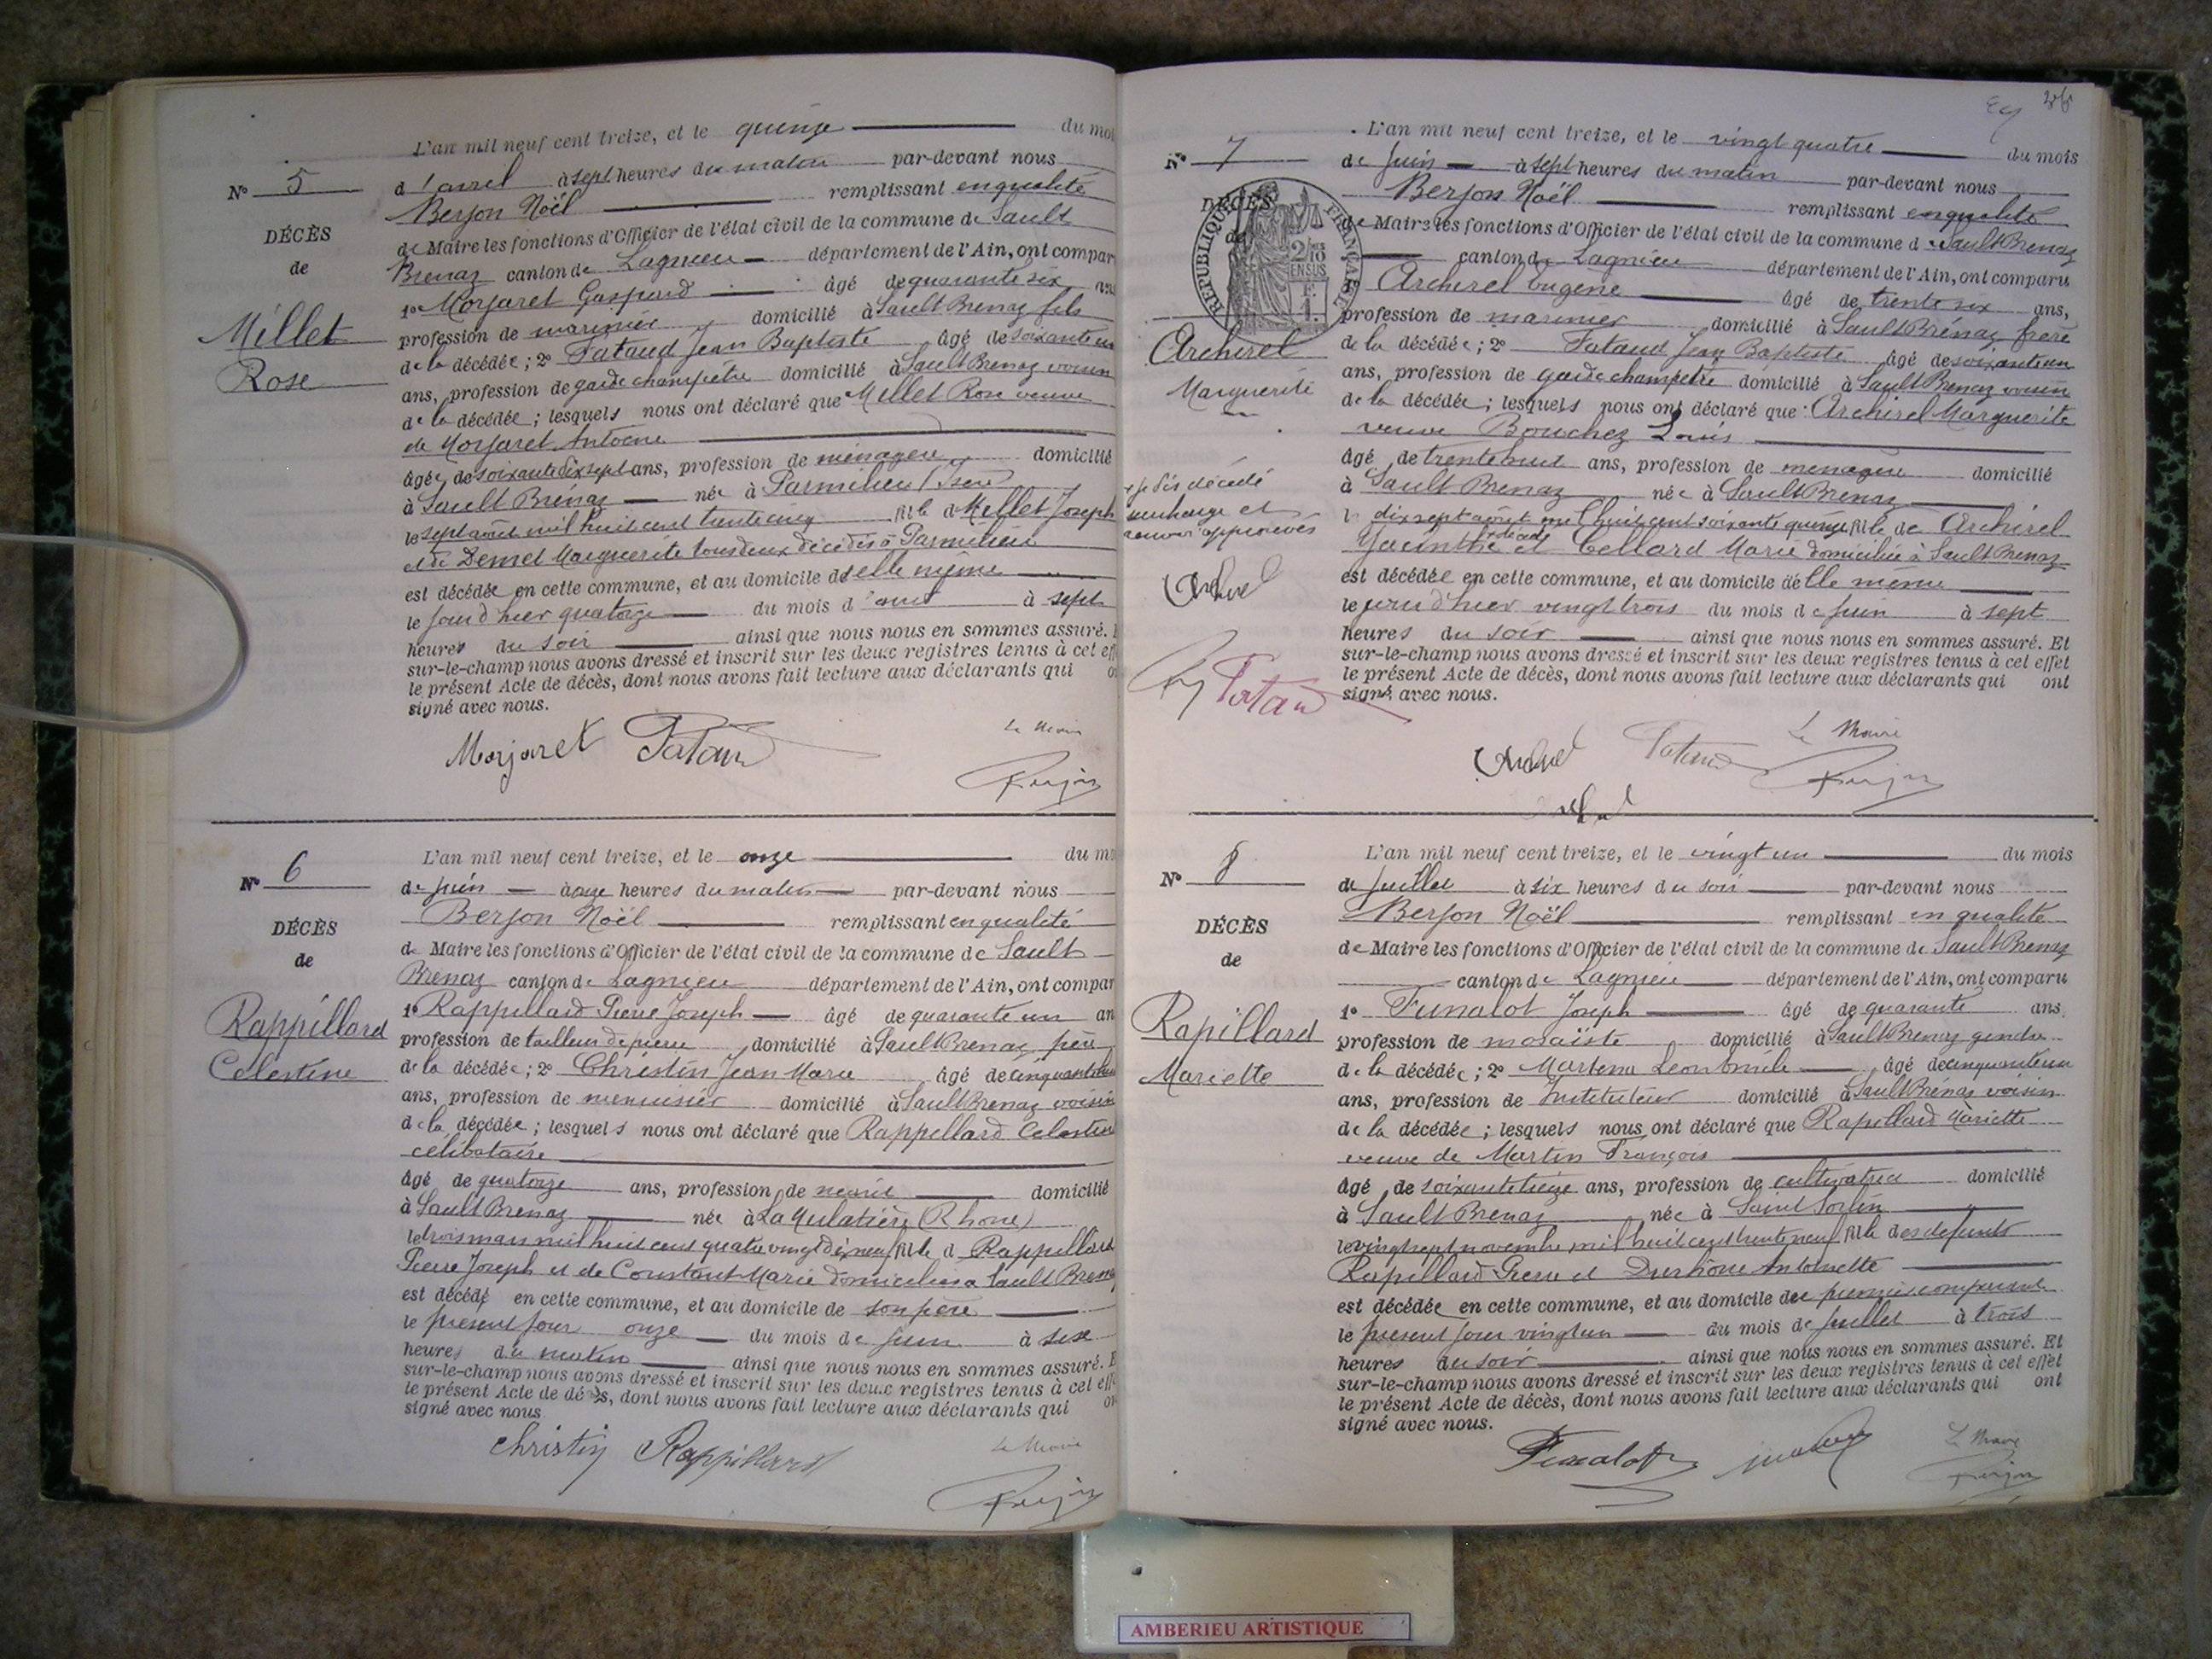 L'an mil neuf cent treize, et le quinze du mois
N° 5
d'avril à sept heures du matin par-devant nous
Berjon Noël remplissant en qualité
DÉCÈS
de
de Maire les fonctions d'Officier de l'état civil de la commune de Sault
Brenaz canton de Lagnieu département de l'Ain, ont compar
1° Morjaret Gaspard âgé de quarante six ans
Millet
Rose
profession de marinier domicilié à Sault Brenaz fils
de la décédée; 2° Tataud Jean Baptiste âgé de soixante un
ans, profession de garde champêtre domicilié à Sault Brenaz voisin
de la décédée; lesquels nous ont déclaré que Millet Rose veuve
de Morjaret Antoine
âgée de soixante dix sept ans, profession de ménagère domicilié
à Sault Brénaz née à Parmilieu (Isère)
le sept août mil huit cent trente cinq fille d Millet Joseph
et de Demet Marguerite tous deux décédés à Parmilieu
est décédée en cette commune, et au domicile d'elle même
le jour d'hier quatorze du mois d' à sept
heures du soir ainsi que nous nous en sommes assuré. E
sur-le-champ nous avons dressé et inscrit sur les deux registres tenus à cet eff
le présent Acte de décès, dont nous avons fait lecture aux déclarants qui on
signé avec nous.
Morjaret Tataud Le Maire
Berjon
L'an mil neuf cent treize, et le onze du mo
N° 6
de juin à onze heures du matin par-devant nous
Berjon Noël remplissant en qualité
DÉCÈS
de
de Maire les fonctions d'Officier de l'état civil de la commune de Sault
Brenaz canton de Lagnieu département de l'Ain, ont compar
Rappillard
Célestine
1° Rappillard Pierre Joseph âgé de quarante un an
profession de tailleur de pierre domicilié à Sault Brenaz père
de la décédée; 2° Christin Jean Marie âgé de
ans, profession de menuisier domicilié à Sault Brenaz voisin
de la décédée; lesquels nous ont déclaré que Rappillard Célestine
célibataire
âgé de quatorze ans, profession de domicilié
à Sault Brenaz née à La Mulatière (Rhône)
le trois mars mil huit cent quatre vingt dix neuf fille d Rappillard
Pierre Joseph et de Constant Marie domiciliés à Sault Brenaz
est décédé en cette commune, et au domicile de son père
le présent jour onze du mois de juin à six
heures du matin ainsi que nous nous en sommes assuré. E
sur-le-champ nous avons dressé et inscrit sur les deux registres tenus à cet eff
le présent Acte de décès, dont nous avons fait lecture aux déclarants qui on
signé avec nous
Christin Rappillard Le Maire
Berjon
L'an mil neuf cent treize, et le vingt quatre du mois
N° 7
de juin à sept heures du matin par-devant nous
Berjon Noël remplissant en qualité
DÉCÈS
de
RÉPUBLIQUE FRANÇAISE
2/10 EN SUS
F. 1.
de Maire les fonctions d'Officier de l'état civil de la commune d Sault Brenaz
canton de Lagnieu département de l'Ain, ont comparu
Archirel Eugène âgé de trente six ans,
Archirel
Marguerite
profession de marinier domicilié à Sault Brénaz frère
de la décédée; 2° Tataud Jean Baptiste âgé de soixante un
ans, profession de garde champêtre domicilié à Sault Brenaz voisin
de la décédée; lesquels nous ont déclaré que Archirel Marguerite
veuve Bouchez Louis
âgé de trente huit ans, profession de ménagère domicilié
à Sault Brenaz née à Sault Brenaz
le dix sept août mil huit cent soixante quinze fille de Archirel
Jacinthe décédé et Cellard Marie domiciliée à Sault Brenaz
décédé
surcharge et
renvoi approuvés
Archirel
Tataud
est décédée en cette commune, et au domicile d'elle même
le jour d'hier vingt trois du mois de juin à sept
heures du soir ainsi que nous nous en sommes assuré. Et
sur-le-champ nous avons dressé et inscrit sur les deux registres tenus à cet effet
le présent Acte de décès, dont nous avons fait lecture aux déclarants qui ont
signé avec nous.
Archirel Tataud Le Maire
Berjon
L'an mil neuf cent treize, et le vingt un du mois
N° 8
de juillet à six heures du soir par-devant nous
Berjon Noël remplissant en qualité
DÉCÈS
de
de Maire les fonctions d'Officier de l'état civil de la commune de Sault Brenaz
canton de Lagnieu département de l'Ain, ont comparu
Rapillard
Mariette
1° Funalot Joseph âgé de quarante ans.
profession de mosaïste domicilié à Sault Brenaz gendre
de la décédée; 2° Léon Emile âgé de cinquante un
ans, profession de Instituteur domicilié à Sault Brénaz voisin
de la décédée; lesquels nous ont déclaré que Rapillard Mariette
veuve de Martin François
âgé de soixante treize ans, profession de cultivatrice domicilié
à Sault Brenaz née à Saint Sorlin
le vingt sept novembre mil huit cent trente neuf fille des défunts
Rapillard Pierre et Antoinette
est décédée en cette commune, et au domicile du premier comparant
le présent jour vingt un du mois de juillet à trois
heures du soir ainsi que nous nous en sommes assuré. Et
sur-le-champ nous avons dressé et inscrit sur les deux registres tenus à cet effet
le présent Acte de décès, dont nous avons fait lecture aux déclarants qui ont
signé avec nous.
Funalot Le Maire
Berjon
AMBERIEU ARTISTIQUE